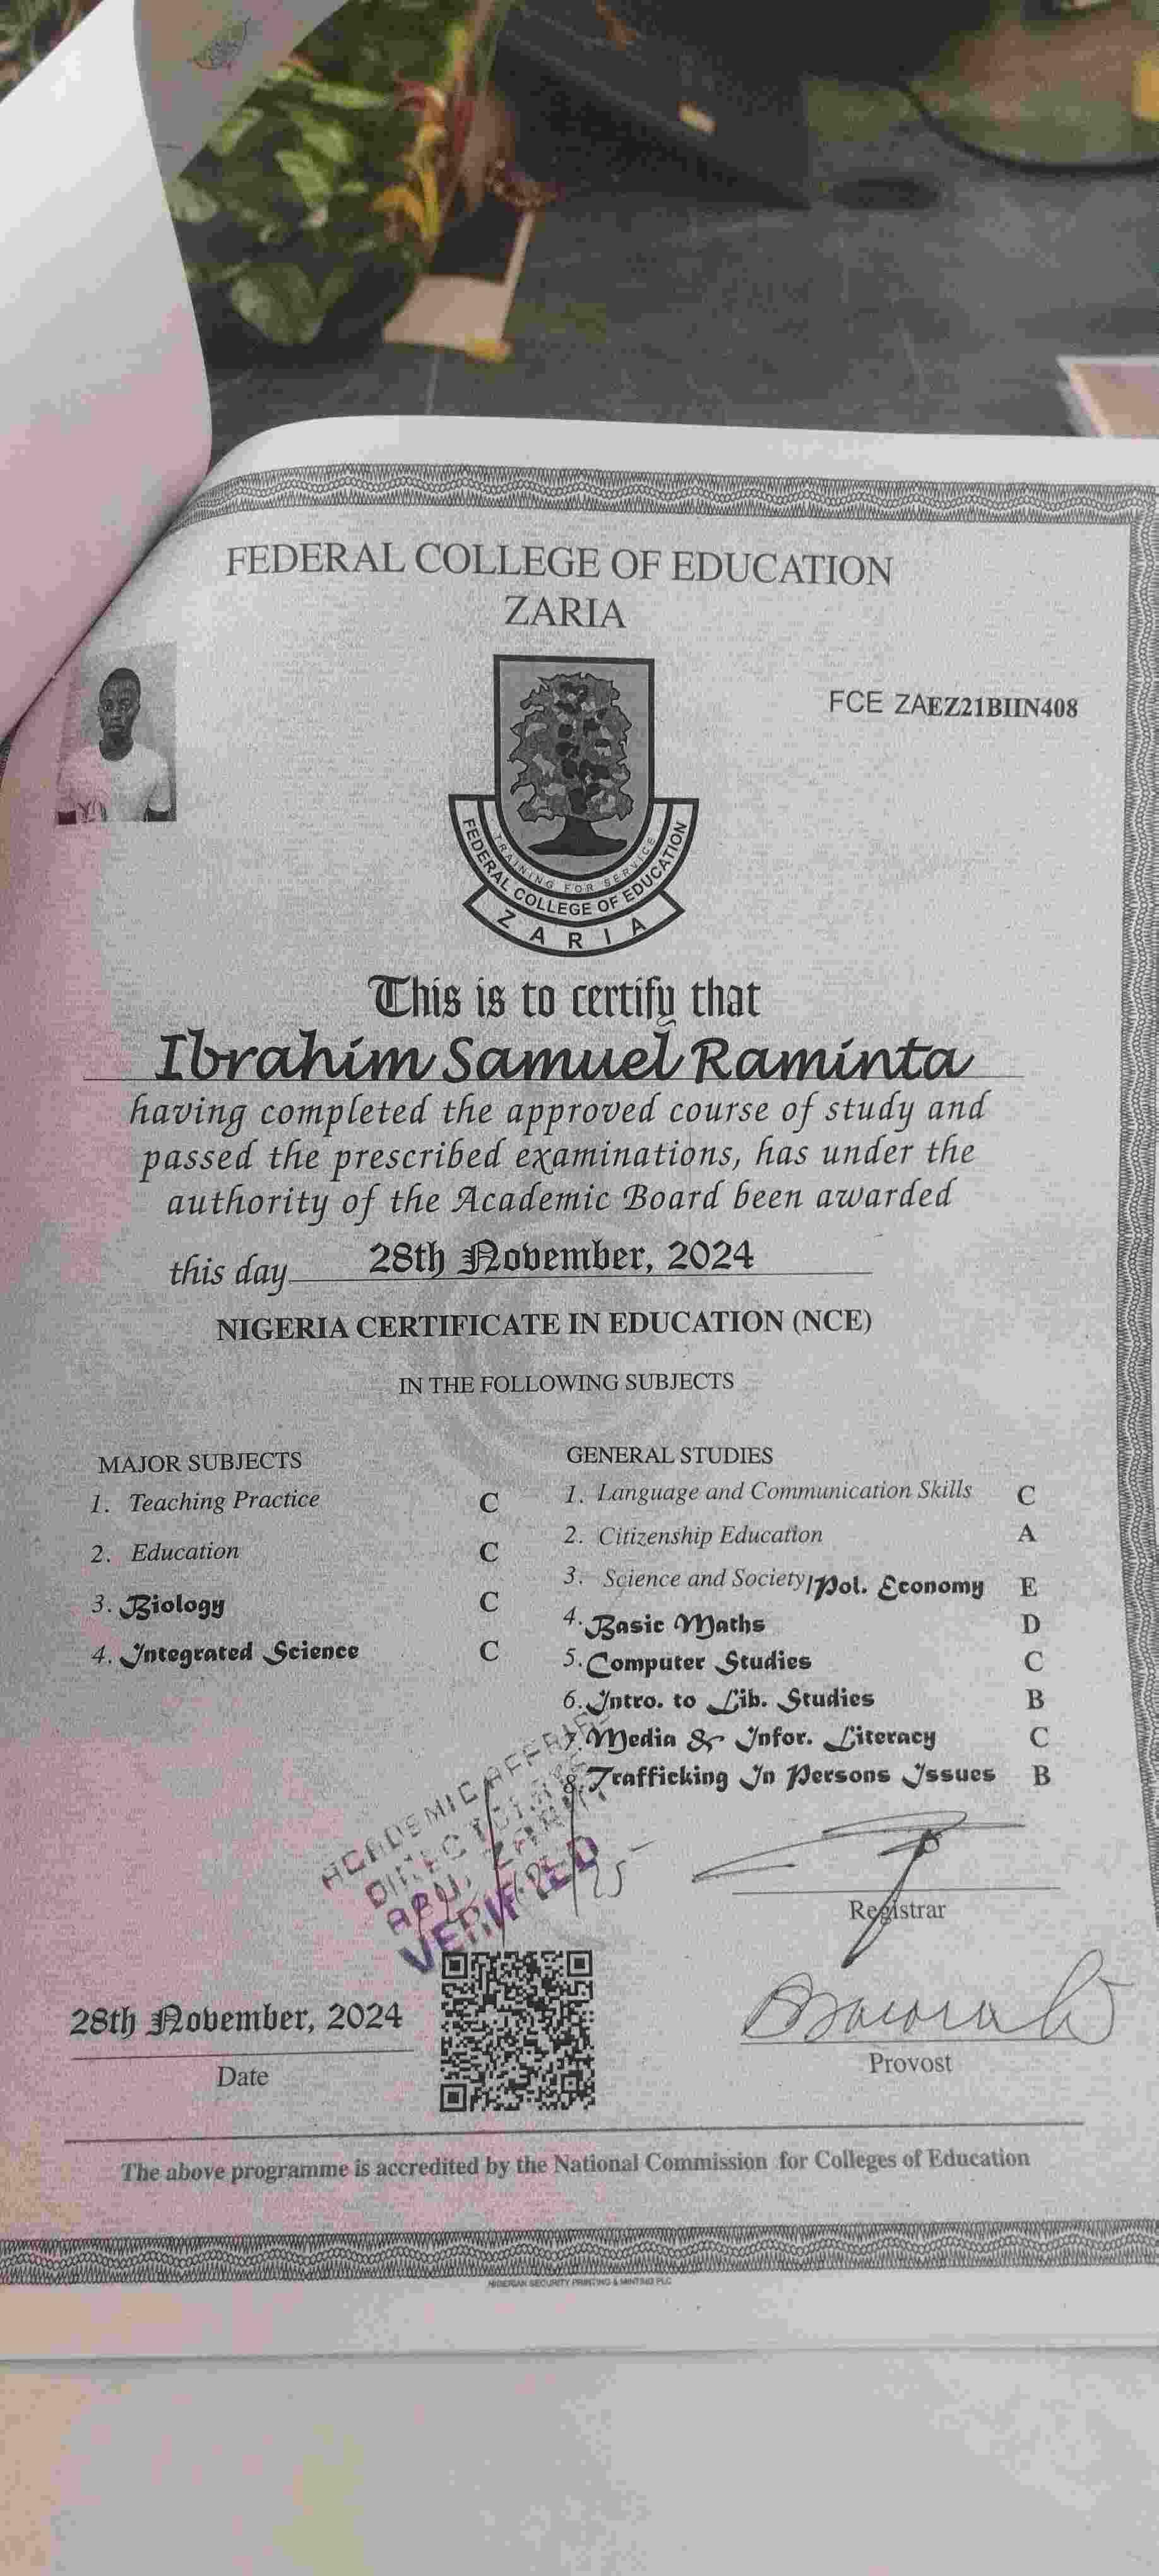 FEDERAL COLLEGE OF EDUCATION
ZARIA
FCE ZAEZ21BIIN408
TRAINING FOR SERVICE
FEDERAL COLLEGE OF EDUCATION
ZARIA
This is to certify that
Ibrahim Samuel Raminta
having completed the approved course of study and
passed the prescribed examinations, has under the
authority of the Academic Board been awarded
this day 28th November, 2024
NIGERIA CERTIFICATE IN EDUCATION (NCE)
IN THE FOLLOWING SUBJECTS
MAJOR SUBJECTS
1. Teaching Practice C
2. Education C
3. Biology C
4. Integrated Science C
GENERAL STUDIES
1. Language and Communication Skills C
2. Citizenship Education A
3. Science and Society/Pol. Economy E
4. Basic Maths D
5. Computer Studies C
6. Intro. to Lib. Studies B
7. Media & Infor. Literacy C
8. Trafficking In Persons Issues B
ACADEMIC AFFAIRS
VERIFIED
Registrar
28th November, 2024
Date
Provost
The above programme is accredited by the National Commission for Colleges of Education
NIGERIAN SECURITY PRINTING & MINTING PLC